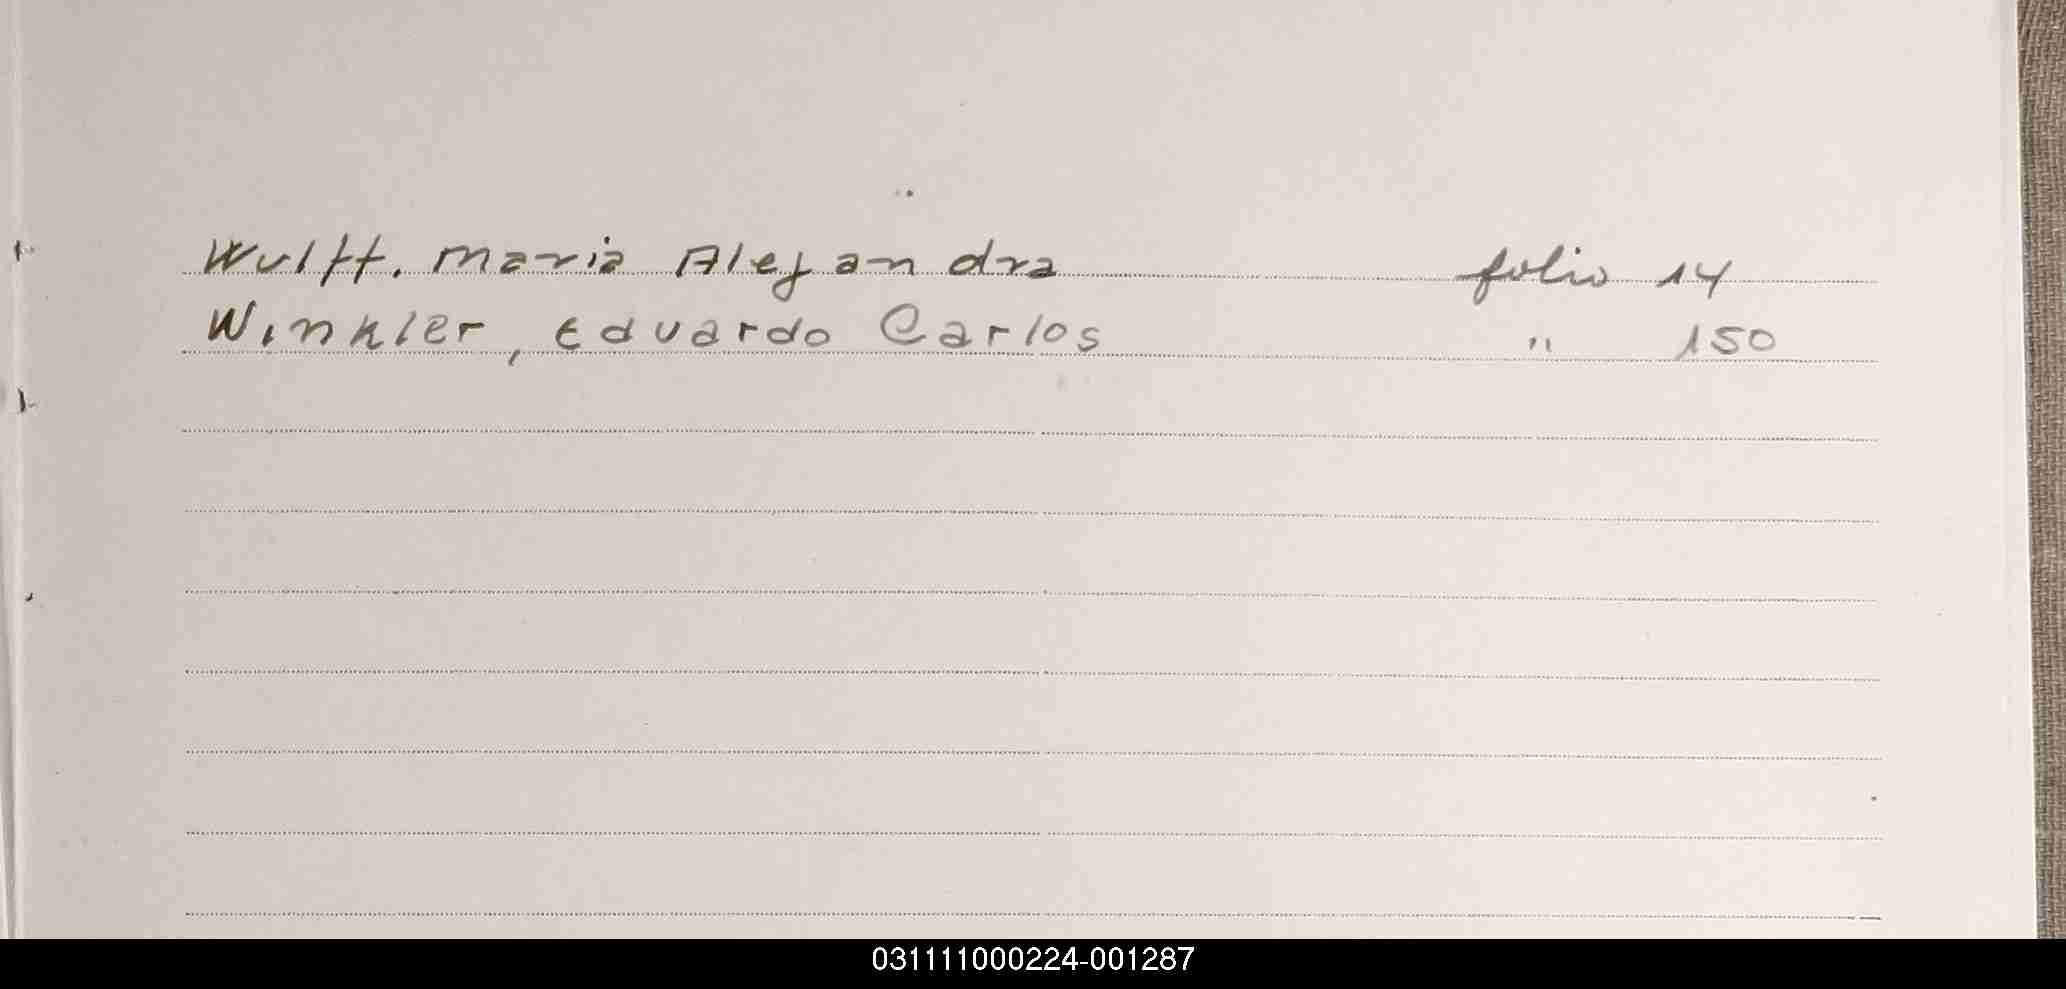 Wulff. Maria Alejandra folio 14
Winkler, Eduardo Carlos " 150
031111000224-001287